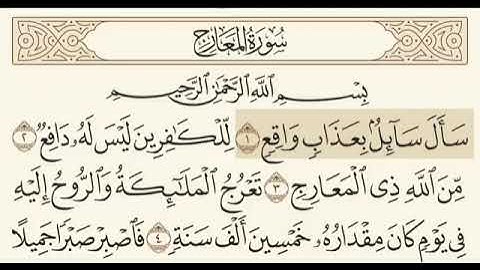 سُورَةُ المَعَارِجِ
بِسْمِ ٱللَّهِ ٱلرَّحْمَٰنِ ٱلرَّحِيمِ
سَأَلَ سَآئِلُۢ بِعَذَابٖ وَاقِعٖ ١ لِّلۡكَٰفِرِينَ لَيۡسَ لَهُۥ دَافِعٞ ٢
مِّنَ ٱللَّهِ ذِي ٱلۡمَعَارِجِ ٣ تَعۡرُجُ ٱلۡمَلَٰٓئِكَةُ وَٱلرُّوحُ إِلَيۡهِ
فِي يَوۡمٖ كَانَ مِقۡدَارُهُۥ خَمۡسِينَ أَلۡفَ سَنَةٖ ٤ فَٱصۡبِرۡ صَبۡرٗا جَمِيلًا